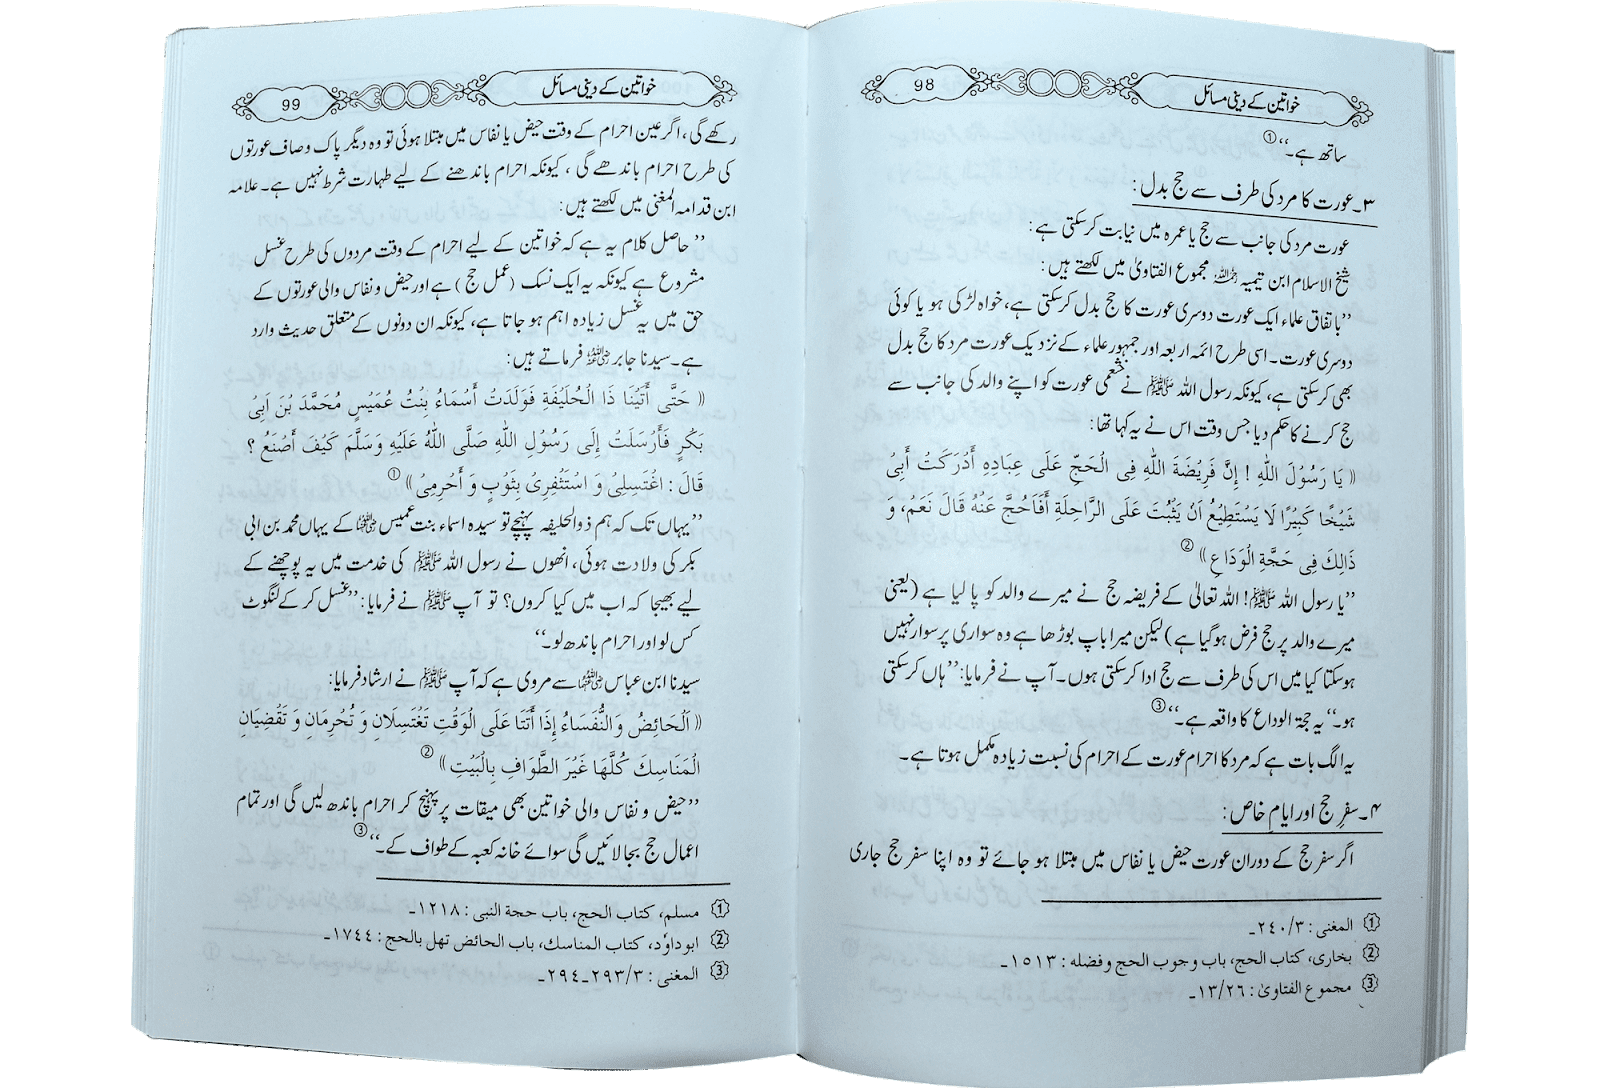 98
خواتین کے دینی مسائل
ساتھ ہے۔‘‘ ①
۳۔عورت کا مرد کی طرف سے حج بدل:
عورت مرد کی جانب سے حج یا عمرہ میں نیابت کرسکتی ہے:
شیخ الاسلام ابن تیمیہ رحمہ اللہ مجموع الفتاویٰ میں لکھتے ہیں:
’’باتفاق علماء ایک عورت دوسری عورت کا حج بدل کرسکتی ہے، خواہ لڑکی ہو یا کوئی
دوسری عورت۔ اسی طرح ائمہ اربعہ اور جمہور علماء کے نزدیک عورت مرد کا حج بدل
بھی کرسکتی ہے، کیونکہ رسول اللہ ﷺ نے خثعمی عورت کو اپنے والد کی جانب سے
حج کرنے کا حکم دیا جس وقت اس نے یہ کہا تھا:
(( يَا رَسُوْلَ اللهِ ! إِنَّ فَرِيْضَةَ اللهِ فِى الْحَجِّ عَلَى عِبَادِهِ أَدْرَكَتْ أَبِىْ
شَيْخًا كَبِيْرًا لَا يَسْتَطِيْعُ اَنْ يَّثْبُتَ عَلَى الرَّاحِلَةِ أَفَاَحُجَّ عَنْهُ قَالَ نَعَمْ، وَ
ذَالِكَ فِى حَجَّةِ الْوَدَاعِ )) ②
’’یا رسول اللہ ﷺ! اللہ تعالیٰ کے فریضہ حج نے میرے والد کو پا لیا ہے (یعنی
میرے والد پر حج فرض ہوگیا ہے) لیکن میرا باپ بوڑھا ہے وہ سواری پر سوار نہیں
ہوسکتا کیا میں اس کی طرف سے حج ادا کرسکتی ہوں۔ آپ نے فرمایا: ’’ہاں کرسکتی
ہو۔‘‘ یہ حجۃ الوداع کا واقعہ ہے۔‘‘ ③
یہ الگ بات ہے کہ مرد کا احرام عورت کے احرام کی نسبت زیادہ مکمل ہوتا ہے۔
۴۔سفرِ حج اور ایامِ خاص:
اگر سفر حج کے دوران عورت حیض یا نفاس میں مبتلا ہو جائے تو وہ اپنا سفر حج جاری
① المغنی : ٢٤٠/٣۔
② بخاری، كتاب الحج، باب وجوب الحج وفضله : ١٥١٣۔
③ مجموع الفتاویٰ : ١٣/٢٦۔
99
خواتین کے دینی مسائل
رکھے گی، اگر عین احرام کے وقت حیض یا نفاس میں مبتلا ہوئی تو وہ دیگر پاک وصاف عورتوں
کی طرح احرام باندھے گی ، کیونکہ احرام باندھنے کے لیے طہارت شرط نہیں ہے۔ علامہ
ابن قدامہ المغنی میں لکھتے ہیں:
’’حاصل کلام یہ ہے کہ خواتین کے لیے احرام کے وقت مردوں کی طرح غسل
مشروع ہے کیونکہ یہ ایک نسک (عمل حج) ہے اور حیض ونفاس والی عورتوں کے
حق میں یہ غسل زیادہ اہم ہو جاتا ہے، کیونکہ ان دونوں کے متعلق حدیث وارد
ہے۔ سیدنا جابر رضی اللہ عنہ فرماتے ہیں:
(( حَتَّى أَتَيْنَا ذَا الْحُلَيْفَةِ فَوَلَدَتْ أَسْمَاءُ بِنْتُ عُمَيْسٍ مُحَمَّدَ بْنَ اَبِىْ
بَكْرٍ فَأَرْسَلَتْ إِلَى رَسُوْلِ اللهِ صَلَّى اللهُ عَلَيْهِ وَسَلَّمَ كَيْفَ أَصْنَعُ ؟
قَالَ : اغْتَسِلِىْ وَ اسْتَثْفِرِىْ بِثَوْبٍ وَ أَحْرِمِىْ )) ①
’’یہاں تک کہ ہم ذوالحلیفہ پہنچے تو سیدہ اسماء بنت عمیس رضی اللہ عنہا کے یہاں محمد بن ابی
بکر کی ولادت ہوئی، انھوں نے رسول اللہ ﷺ کی خدمت میں یہ پوچھنے کے
لیے بھیجا کہ اب میں کیا کروں؟ تو آپ ﷺ نے فرمایا: ’’غسل کر کے لنگوٹ
کس لو اور احرام باندھ لو۔‘‘
سیدنا ابن عباس رضی اللہ عنہما سے مروی ہے کہ آپ ﷺ نے ارشاد فرمایا:
(( اَلْحَائِضُ وَالنُّفَسَاءُ إِذَا أَتَتَا عَلَى الْوَقْتِ تَغْتَسِلَانِ وَ تُحْرِمَانِ وَ تَقْضِيَانِ
الْمَنَاسِكَ كُلَّهَا غَيْرَ الطَّوَافِ بِالْبَيْتِ )) ②
’’حیض ونفاس والی خواتین بھی میقات پر پہنچ کر احرام باندھ لیں گی اور تمام
اعمال حج بجا لائیں گی سوائے خانہ کعبہ کے طواف کے۔‘‘ ③
① مسلم، كتاب الحج، باب حجة النبى : ١٢١٨۔
② ابوداوٗد، كتاب المناسك، باب الحائض تهل بالحج : ١٧٤٤۔
③ المغنی : ٢٩٣/٣۔٢٩٤۔